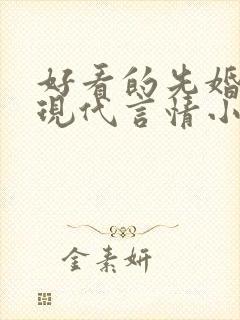 好看的先婚
现代言情小
金素妍